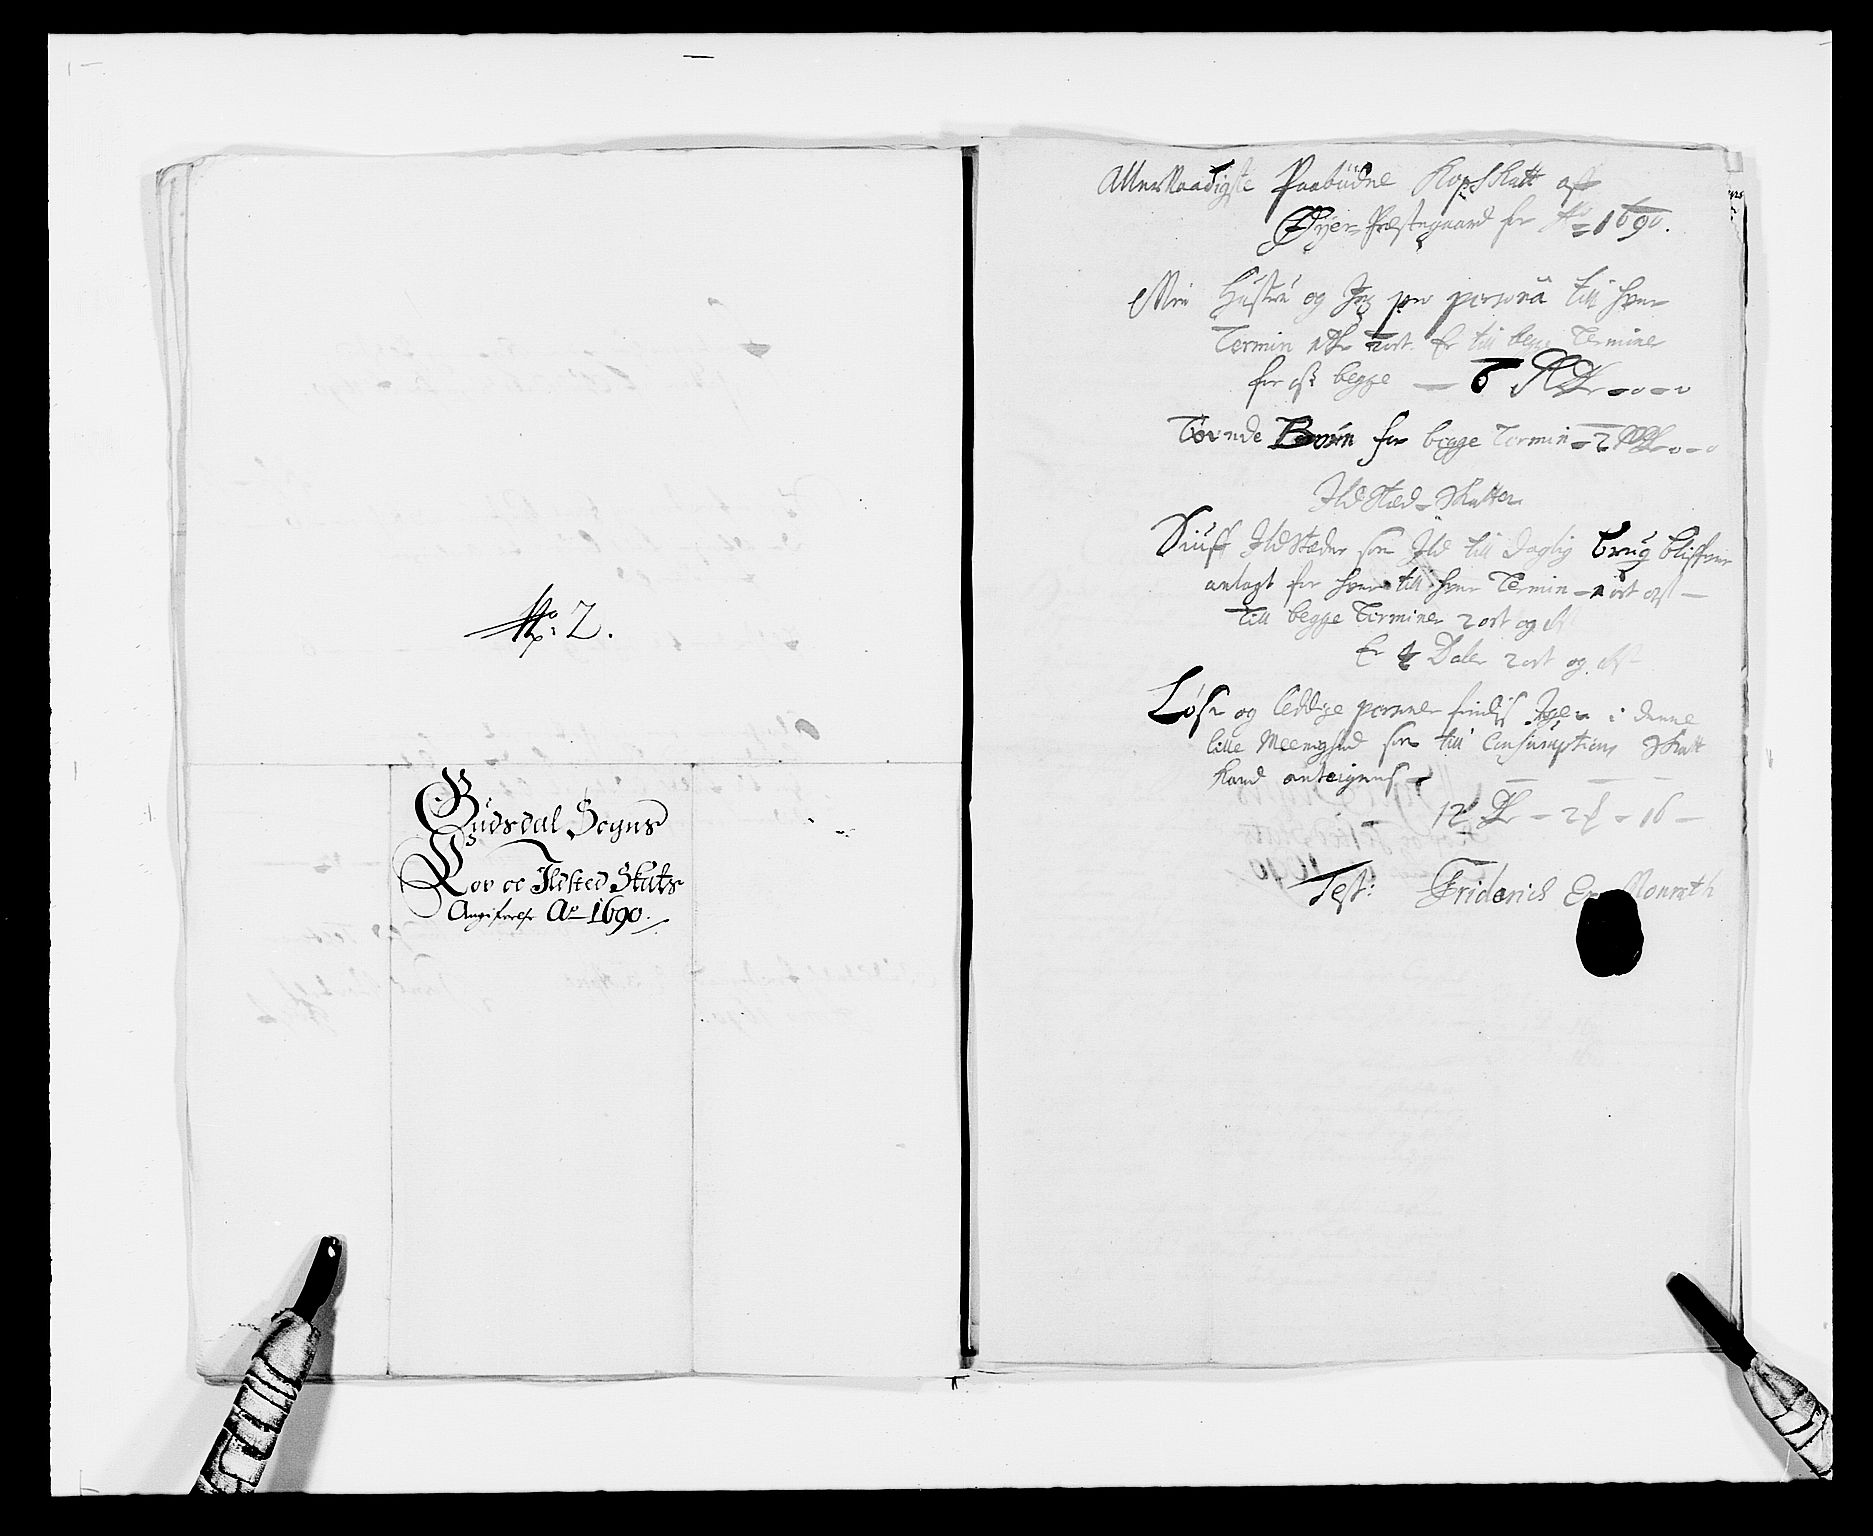 No: 2.
Gudsdal Sogns
Kop oc Ildsted Skats
Angifvelse Ao 1690.
Aller Naadigste Paabudne Kopskatt aff
Øyer Præstegaard for Ao 1690.
Min Hustru og Jeg pro persona till hver
Termin 1 Dr 2 ort Er till begge Terminer
for oss begge — 6 RDr - 0 - 0
Tvende Børn for begge Termin - 2 RDr 0 - 0
Ildsted-Skatten
Siuff Ildstæder som Ild till daglig brug bliffver
anlagt for hver till hver Termin - 1 ort
till begge Terminer 2 ort og
Er 4 Daler 2 ort og
Løse og ledige personer findis Ingen i denne
lille Meenighed som till Consumptions Skatt
kand anteignes
12 Dr - 2 - 16 -
Test: Friderich Monrath